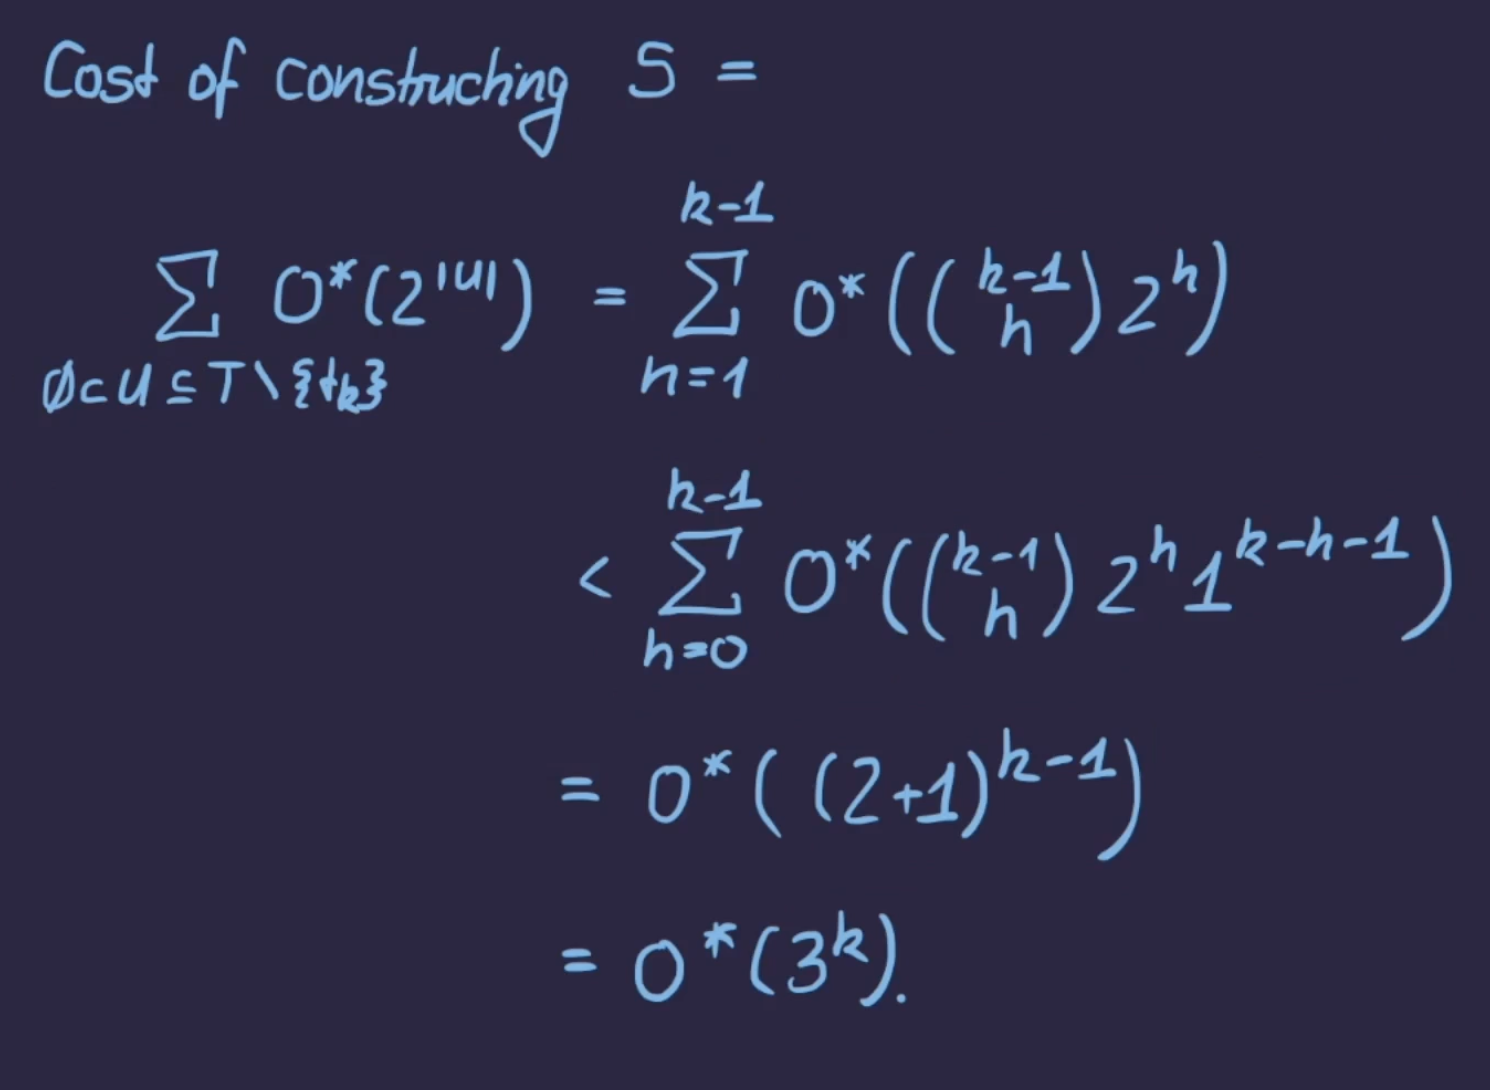 Cost of constructing S =
∑_{∅⊂U⊆T\{t_k}} O*(2^{|U|}) = ∑_{h=1}^{k-1} O*((k-1 choose h) 2^h)
< ∑_{h=0}^{k-1} O*((k-1 choose h) 2^h 1^{k-h-1})
= O*((2+1)^{k-1})
= O*(3^k).